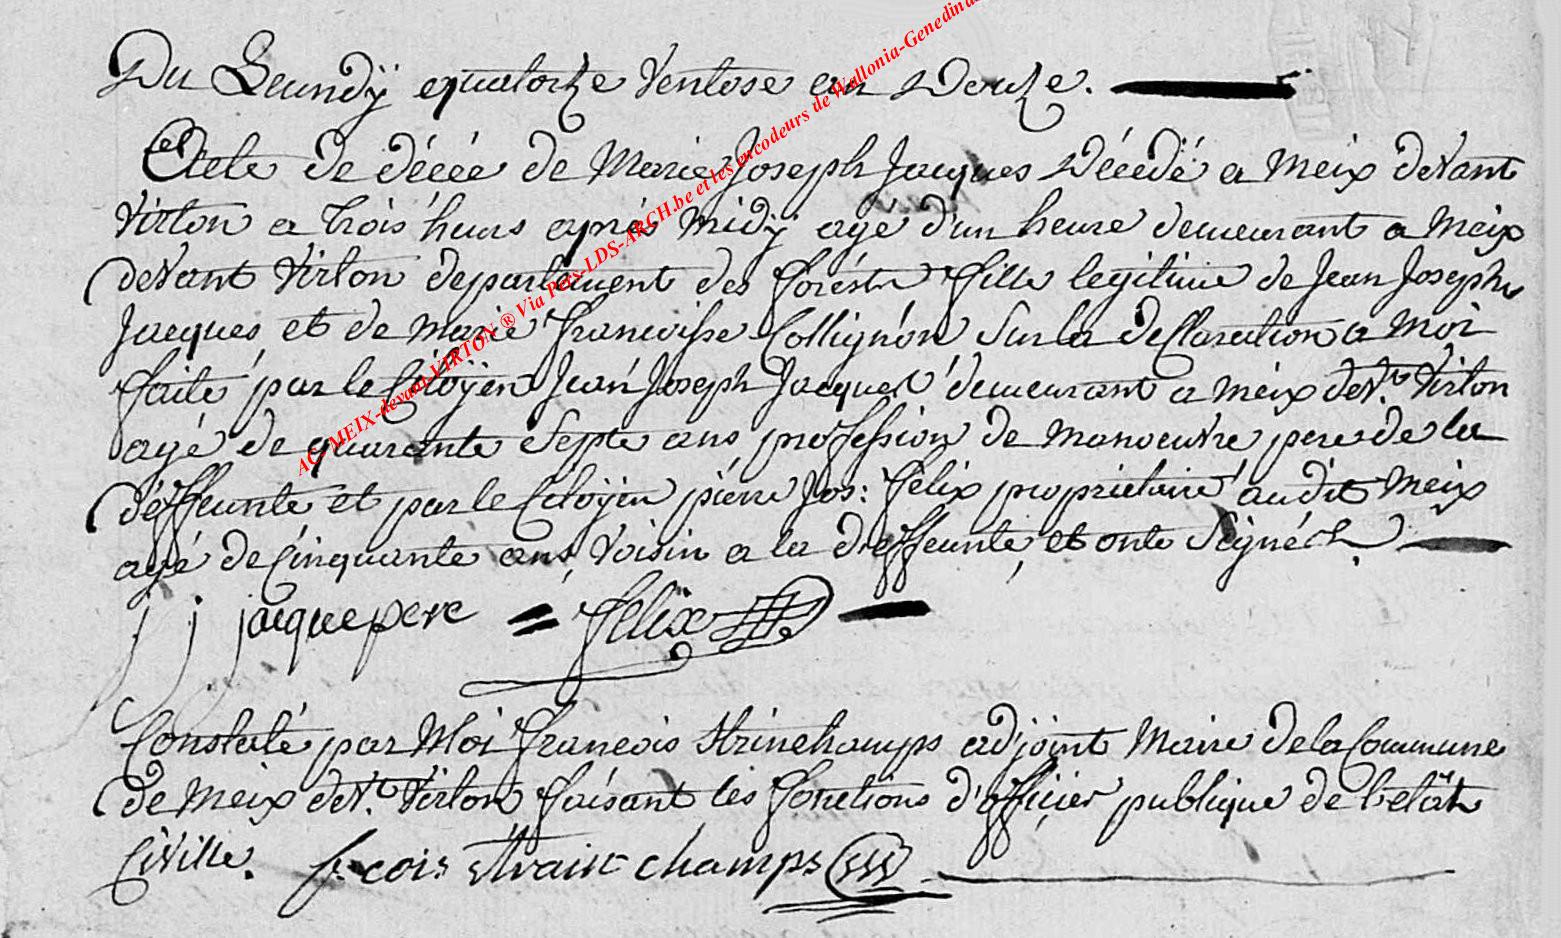 Du Leundÿ quatorze Ventose an Douze.
Acte de décée de Marie Joseph Jacques Décedé a Meix devant
Virton a trois heurs aprés midÿ agé d'un heure demeurant a Meix
devant Virton departement des forêsts fille legitime de Jean Joseph
Jacques et de Marie francoisse Collignon Sur la declaration a Moi
faite par le Citoÿen Jean Joseph Jacques demeurant a Meix devt. Virton
agé de quarante Septe ans profession de manoeuvre pere de la
deffeunte et par le Citoÿen pierre Jos: félix proprietaire audit Meix
agé de Cinquante ans, Voisin a la deffeunte, et onte Signé
j j jacque pere = felix
Constaté par Moi francois Strinchamps adjoint Maire de la Commune
de Meix devt. Virton faisant les fonctions d'officier publique de l'etât
Civille. f: cois strainchamps
AC MEIX-devant-VIRTON ® Via Pers-LDS-ARCH.be et les encodeurs de Wallonia-Genedin